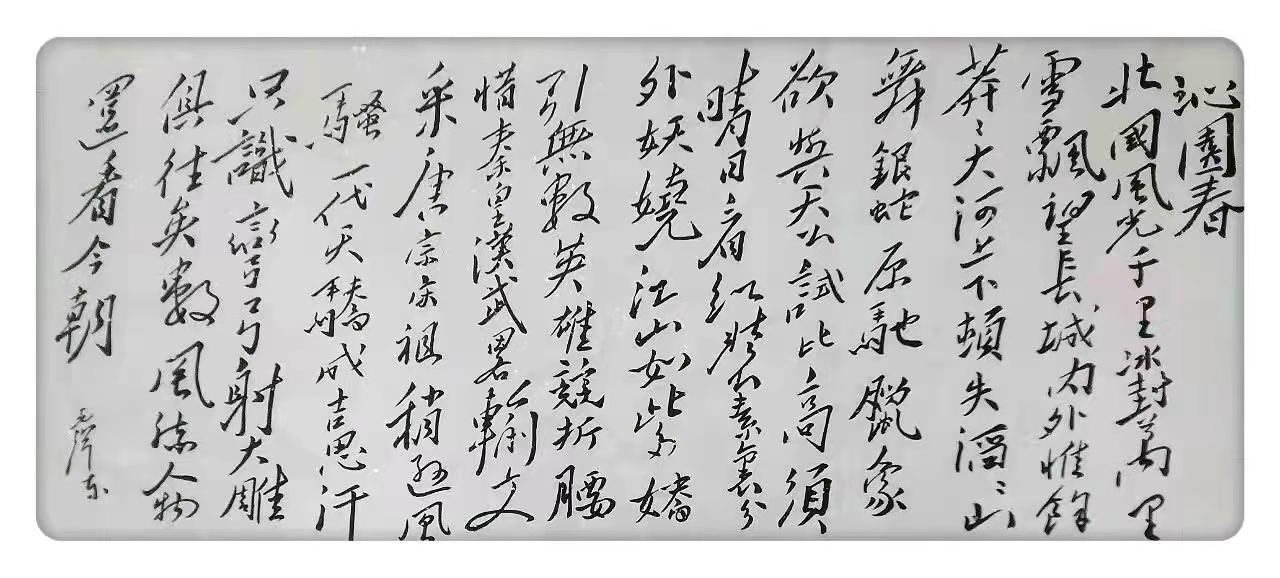 沁園春
北國風光千里冰封萬里
雪飄望長城內外惟餘
莽々大河上下頓失滔々山
舞銀蛇原馳臘象
欲與天公試比高須
晴日看紅裝素裹分
外妖嬈江山如此多嬌
引無數英雄競折腰
惜秦皇漢武畧輸文
采唐宗宋祖稍遜風
騷一代天驕成吉思汗
只識彎弓射大雕
俱往矣數風流人物
還看今朝
毛澤东